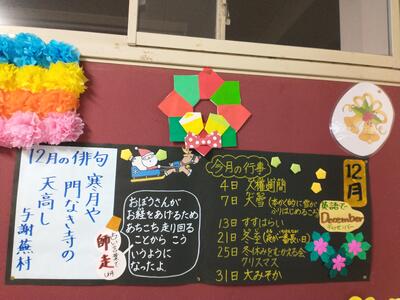 12月の俳句
寒月や
門なき寺の
天高し
与謝蕪村
師走
おぼうさんが
お経をあげるため
あちこち走り回る
ことから こう
いうように
なったよ。
今月の行事
4日 人権週間
7日 大雪
13日 すすはらい
21日 冬至(夜が一番長い日)
25日 冬休みをむかえる会
クリスマス
31日 大みそか
12月
英語で
December
ディッセンバー